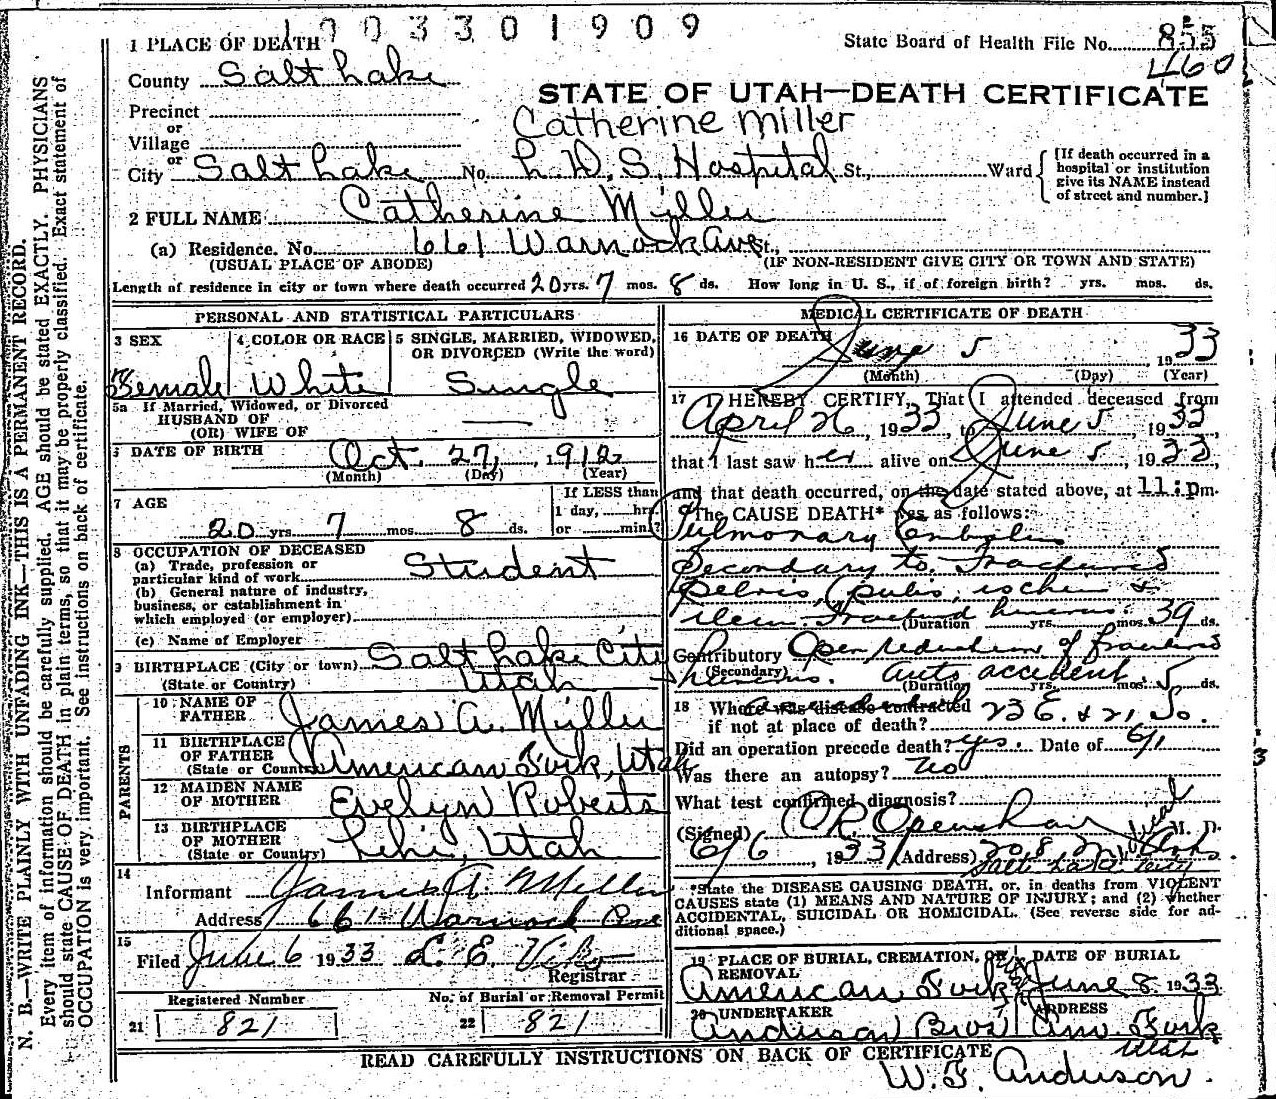 1003301909
1 PLACE OF DEATH
State Board of Health File No. 855
460
County Salt Lake
STATE OF UTAH—DEATH CERTIFICATE
Precinct
or
Catherine Miller
Village
or
City Salt Lake No. L. D. S. Hospital St., Ward
[If death occurred in a hospital or institution give its NAME instead of street and number.]
2 FULL NAME Catherine Miller
(a) Residence. No. 661 Warnock Ave St.,
(USUAL PLACE OF ABODE) (IF NON-RESIDENT GIVE CITY OR TOWN AND STATE)
Length of residence in city or town where death occurred 20 yrs. 7 mos. 8 ds. How long in U. S., if of foreign birth? yrs. mos. ds.
PERSONAL AND STATISTICAL PARTICULARS
3 SEX 4 COLOR OR RACE 5 SINGLE, MARRIED, WIDOWED, OR DIVORCED (Write the word)
Female White Single
5a If Married, Widowed, or Divorced
HUSBAND OF
(OR) WIFE OF
6 DATE OF BIRTH Oct. 27, 1912
(Month) (Day) (Year)
7 AGE
If LESS than
1 day, hrs.
or min.?
20 yrs. 7 mos. 8 ds.
8 OCCUPATION OF DECEASED
(a) Trade, profession or
particular kind of work Student
(b) General nature of industry,
business, or establishment in
which employed (or employer)
(c) Name of Employer
9 BIRTHPLACE (City or town) Salt Lake City
(State or Country) Utah
PARENTS
10 NAME OF FATHER James A. Miller
11 BIRTHPLACE OF FATHER (State or Country) American Fork, Utah
12 MAIDEN NAME OF MOTHER Evelyn Roberts
13 BIRTHPLACE OF MOTHER (State or Country) Lehi, Utah
14
Informant James A. Miller
Address 661 Warnock Ave
15
Filed June 6 1933
Registrar
Registered Number No. of Burial or Removal Permit
21 821 22 821
MEDICAL CERTIFICATE OF DEATH
16 DATE OF DEATH
June 5 1933
(Month) (Day) (Year)
17 I HEREBY CERTIFY, That I attended deceased from
April 26, 1933, to June 5, 1933,
that I last saw her alive on June 5, 1933,
and that death occurred, on the date stated above, at 11:pm.
The CAUSE DEATH* was as follows:
Pulmonary Embolus
Secondary to Fractured
pelvis, (pubis, ischium &
ilium. Fractured humerus.
(Duration yrs. mos. 39 ds.
Contributory Open reduction of fractured
(Secondary) humerus. Auto accident.
(Duration yrs. mos. 5 ds.
18 Where was disease contracted
if not at place of death? 23 E. & 21 So.
Did an operation precede death? Yes. Date of 6/1
Was there an autopsy? No
What test confirmed diagnosis?
(Signed) O R Openshaw M. D.
6/6, 1933 (Address) Medical Arts
Salt Lake City
*State the DISEASE CAUSING DEATH, or, in deaths from VIOLENT
CAUSES state (1) MEANS AND NATURE OF INJURY; and (2) whether
ACCIDENTAL, SUICIDAL OR HOMICIDAL. (See reverse side for ad-
ditional space.)
19 PLACE OF BURIAL, CREMATION, OR REMOVAL DATE OF BURIAL
American Fork Utah June 8, 1933
20 UNDERTAKER ADDRESS
Anderson Bros Am. Fork
Utah
READ CAREFULLY INSTRUCTIONS ON BACK OF CERTIFICATE
W. F. Anderson.
N. B.—WRITE PLAINLY WITH UNFADING INK—THIS IS A PERMANENT RECORD.
Every item of information should be carefully supplied. AGE should be stated EXACTLY. PHYSICIANS
should state CAUSE OF DEATH in plain terms, so that it may be properly classified. Exact statement of
OCCUPATION is very important. See instructions on back of certificate.